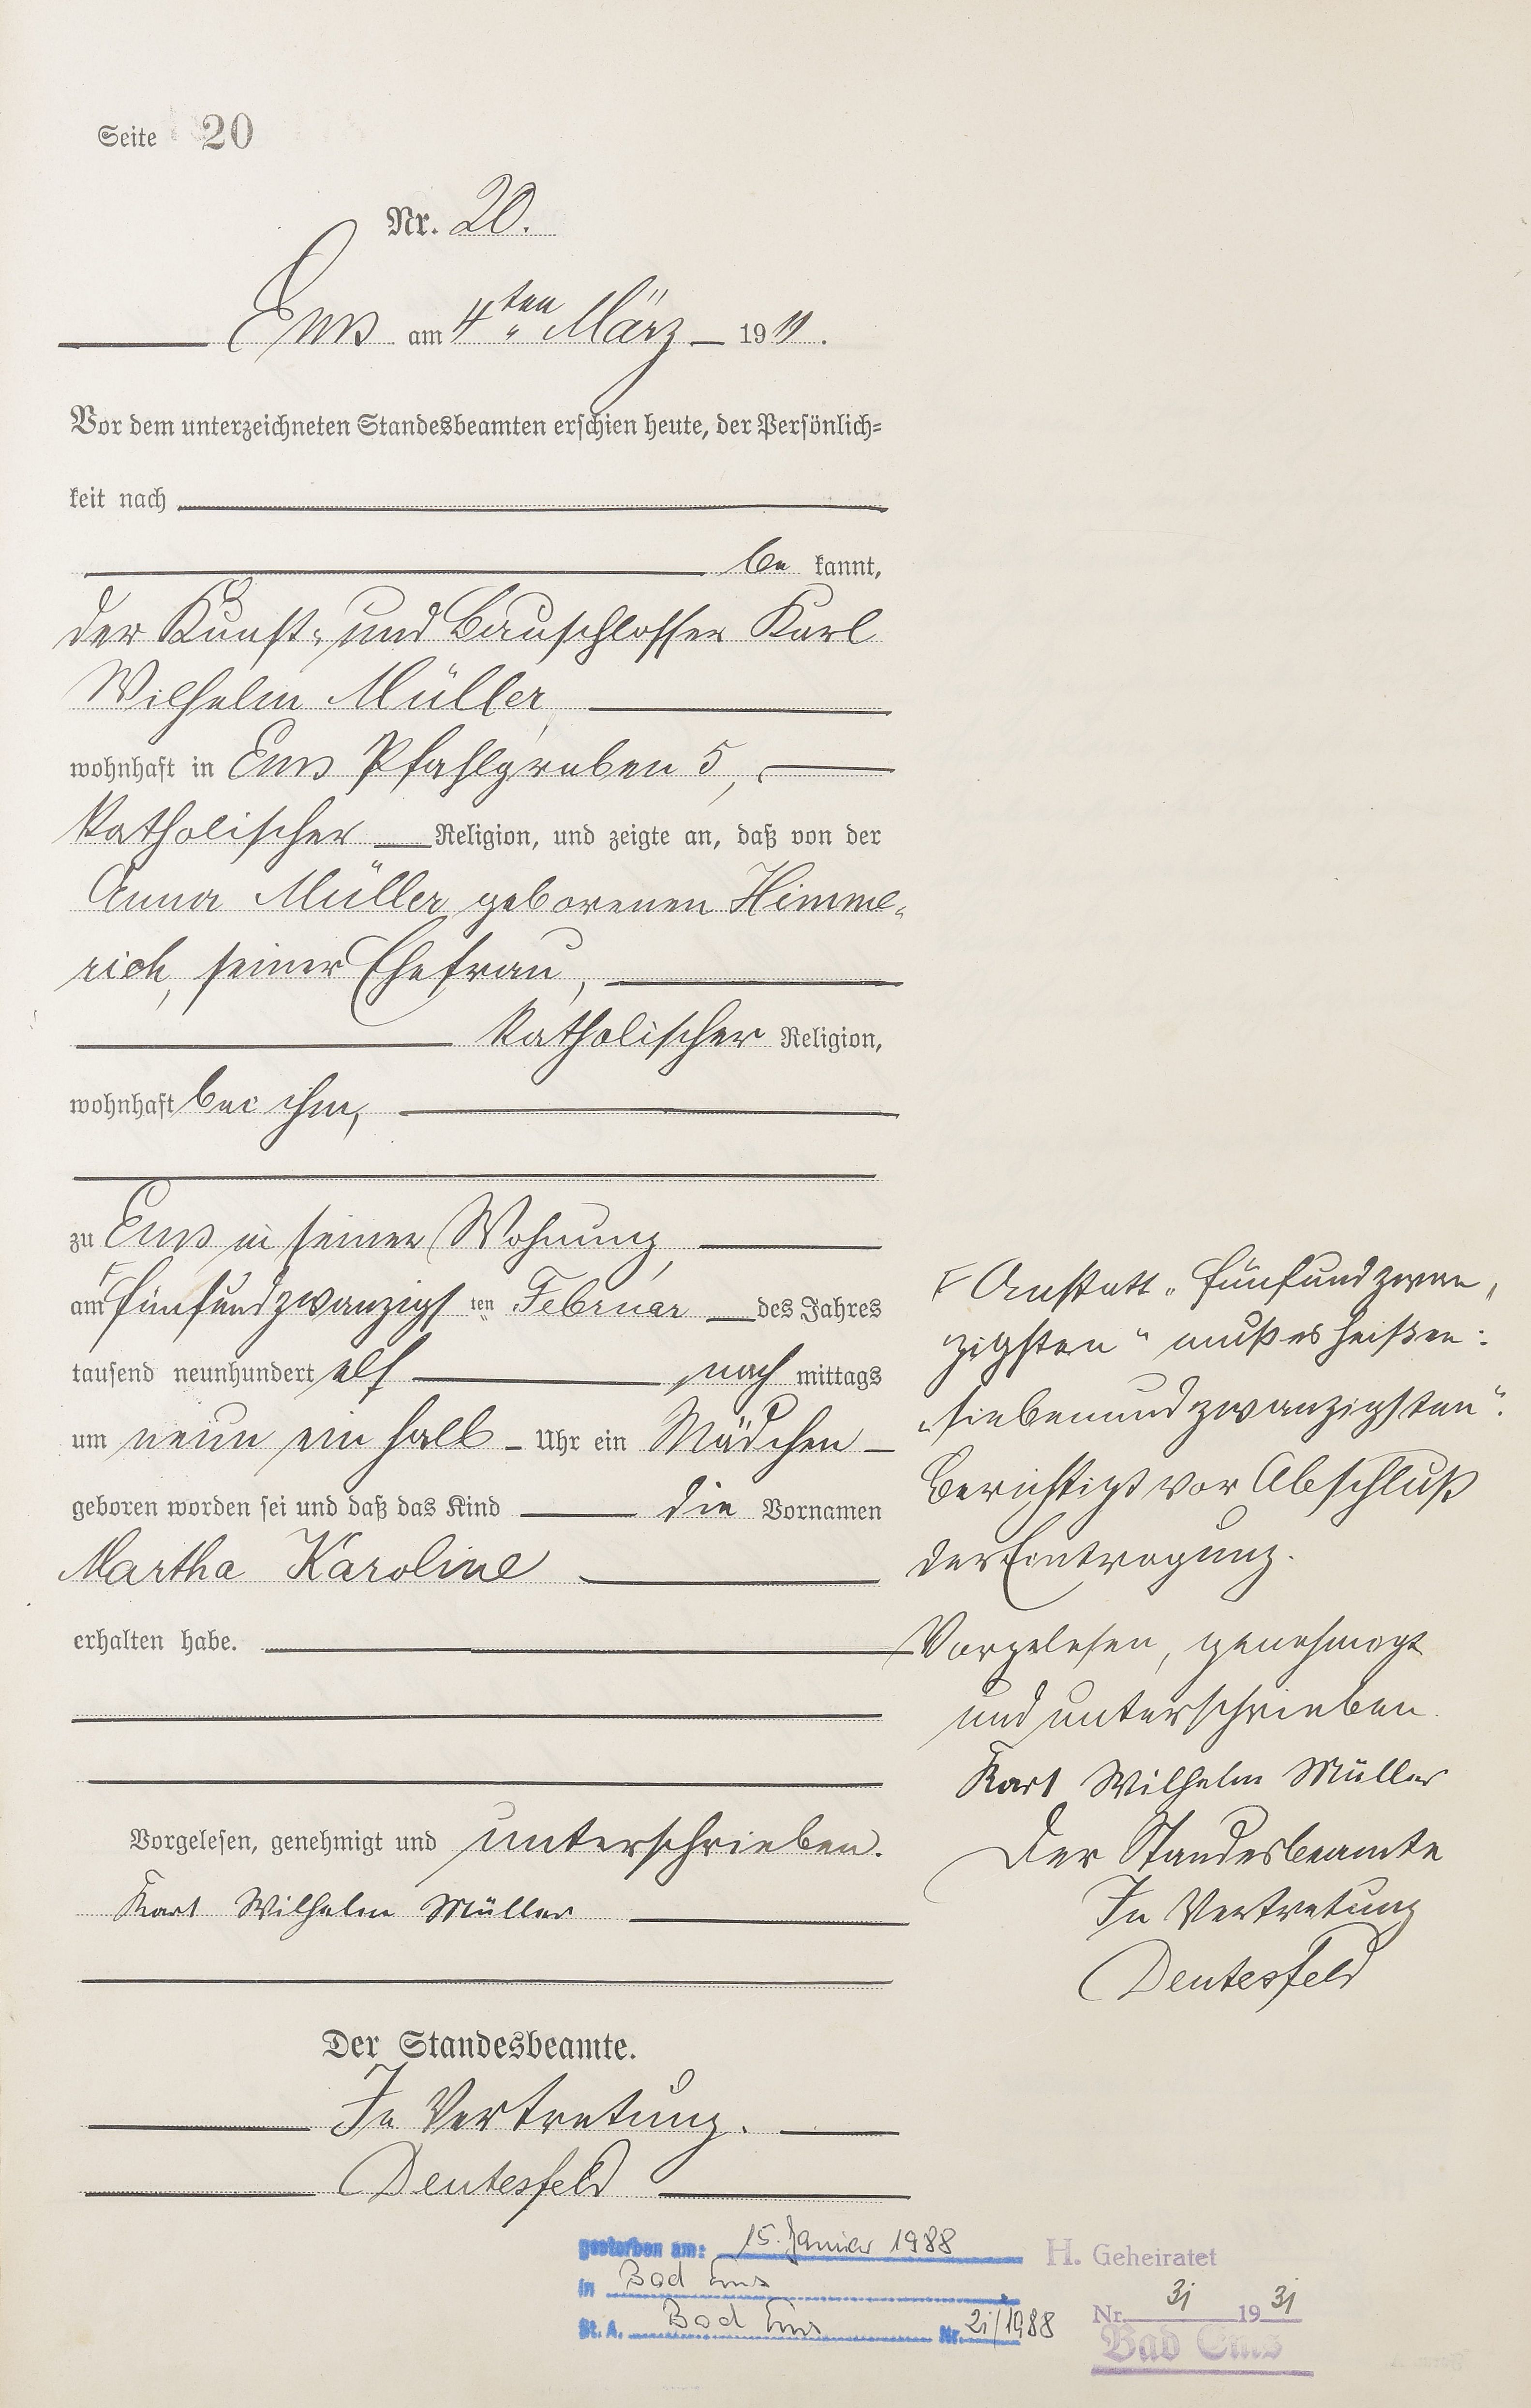 Seite 20
Nr. 20.
Ems am 4ten März 1911.
Vor dem unterzeichneten Standesbeamten erschien heute, der Persönlich=
keit nach
be kannt,
der Kunst- und Bauschlosser Karl
Wilhelm Müller
wohnhaft in Ems Pfahlgraben 5,
katholischer Religion, und zeigte an, daß von der
Anna Müller geborenen Himme-
rich, seiner Ehefrau,
katholischer Religion,
wohnhaft bei ihm,
zu Ems in seiner Wohnung,
am fünfundzwanzigs ten Februar des Jahres
tausend neunhundert elf nach mittags
um neun ein halb Uhr ein Mädchen
geboren worden sei und daß das Kind die Vornamen
Martha Karoline
erhalten habe.
Vorgelesen, genehmigt und unterschrieben.
Karl Wilhelm Müller
Der Standesbeamte.
In Vertretung.
Deutesfeld
Anstatt „fünfundzwan-
zigsten" muß es heißen:
„siebenundzwanzigsten".
Berichtigt vor Abschluß
der Eintragung.
Vorgelesen, genehmigt
und unterschrieben.
Karl Wilhelm Müller
Der Standesbeamte
In Vertretung
Deutesfeld
gestorben am: 15. Januar 1988
in Bad Ems
St. A. Bad Ems Nr. 21/1988
H. Geheiratet
Nr. 31 1931
Bad Ems